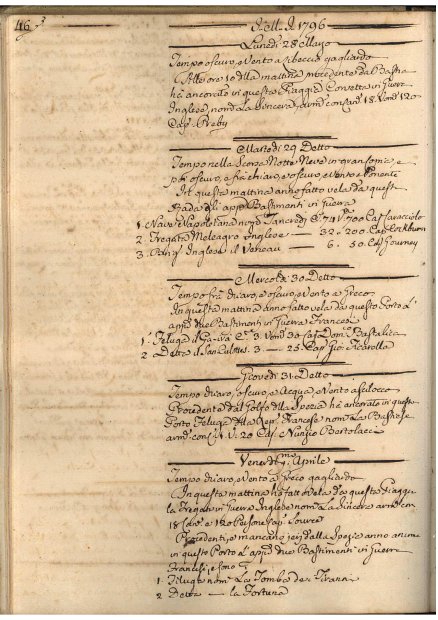 46
1796
Lunedì 28 Marzo
Tempo oscuro, e Vento a Libeccio gagliardo
Alle ore 10 della mattina procedente da Bastia
hà ancorato in questa Spiaggia Corvetta in Guerra
Inglese, nom. La Sincera, arm. con Can. 18 Uom. 120
Cap.
Martedì 29 Detto
Tempo nella Scorsa Notte Neve in gran copia, e
più oscuro, e frà chiaro, e oscuro, e Vento a Ponente
In questa mattina anno fatto vela da quest
Rada gli appi. Bastimenti in Guerra
1. Nave Napoletana nom. Tancredi C. 74 V. 700 Cap. Caracciolo
2. Fregata Meleagro Inglese — 32 - 200 Cap. Cockburn
3. Inglese il — 6. 50 Cap. Gourney
Mercoldì 30 Detto
Tempo frà chiaro, e oscuro, e Vento a Greco
In questa mattina anno fatto vela da questo Porto l'
appi. due Bastimenti in Guerra Francesi
1. Feluga C. 3 Uom. 30 Cap. Dom. Bastalica
2. Detta il Sanculottes 3 — 25 Cap. Gio: Ficarella
Giovedì 31 Detto
Tempo chiaro, oscuro e Acqua, e Vento a Scilocco
Procedente dal Golfo della Spezia hà ancorato in questo
Porto Feluga della Rep. Francese nom. La Bastiese
arm. con C. V. 20 Cap. Nunzio Bortolacci
Venerdì p.mo Aprile
Tempo chiaro, e Vento a Greco gagliardo
In questa mattina hà fatto Vela da questa Spiaggia
la Fregata in Guerra Inglese nom. La Sincera arm. con
18 Can. e 120 Persone Cap.
Procedenti, e mancano jeri dalla Spezia anno ancorato
in questo Porto l'appi. due Bastimenti in Guerra
Francesi, e sono
1. Filuga nom. La Tomba dei Tiranni
2 Detta — la Fortuna